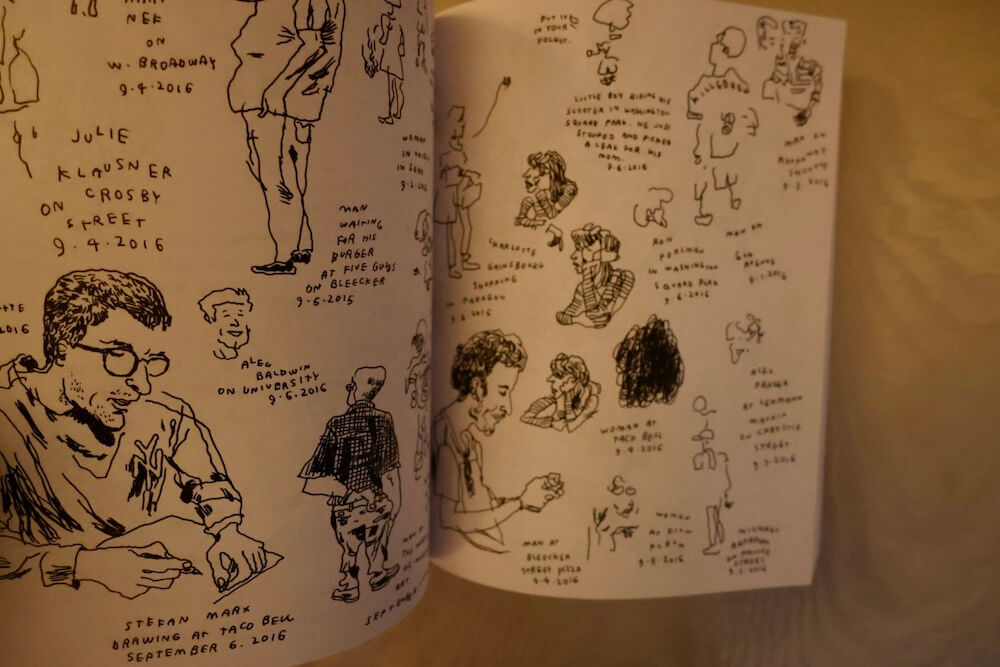 NEF
ON
W. BROADWAY
9.4.2016
JULIE
KLAUSNER
ON CROSBY
STREET
9.4.2016
2016
MAN
WAITING
FOR HIS
BURGER
AT FIVE GUYS
ON BLEECKER
9.6.2016
ALEC
BALDWIN
ON UNIVERSITY
9.6.2016
STEFAN MARX
DRAWING AT TACO BELL
SEPTEMBER 6. 2016
WOMAN
IN
IN
PUT IT
IN YOUR
POCKET.
LITTLE BOY RIDING HIS
SCOOTER IN WASHINGTON
SQUARE PARK. HE JUST
STOPPED AND PICKED
A LEAF FOR HIS
MOM.
9.6.2016
KILLEDBOY
MAN ON
BROADWAY
9.5.2016
CHARLOTTE
GAINSBOURG
SHOPPING
IN PARAGON
9.6.2016
RON
PERLMAN
IN WASHINGTON
SQUARE PARK
9.6.2016
MAN ON
6TH
AVENUE
9.1.2016
WOMAN AT
TACO BELL
9.4.2016
ALEX
PRAGER
AT LEHMANN
MAUPIN
ON CHRYSTIE
STREET
9.7.2016
MAN AT
BLEECKER
STREET PIZZA
9.4.2016
WOMAN
AT FILM
FORUM
9.5.2016
MICHAEL
ON PRINCE
STREET